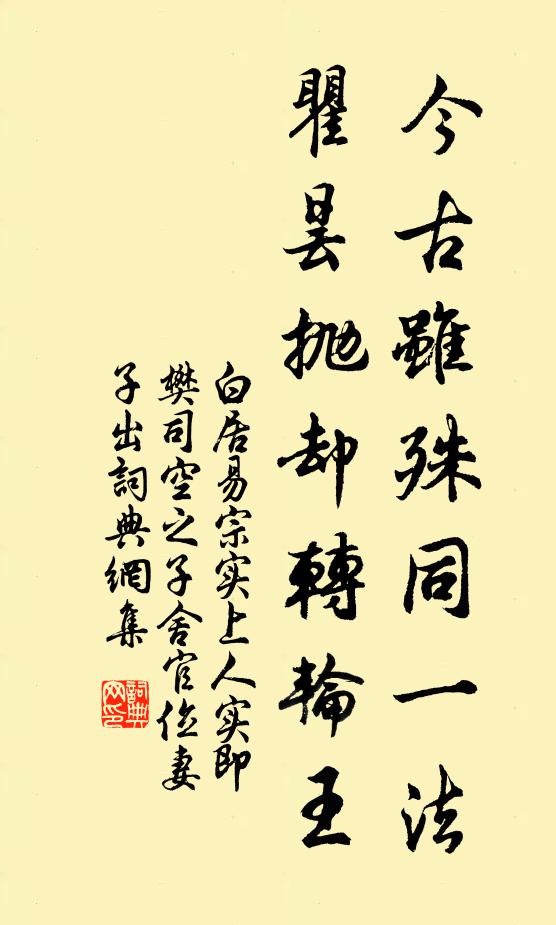 今古雖殊同一法
瞿曇抛却轉輪王
白居易宗实上人实即
樊司空之子舍官位妻
子出詞典網集
詞典
网印